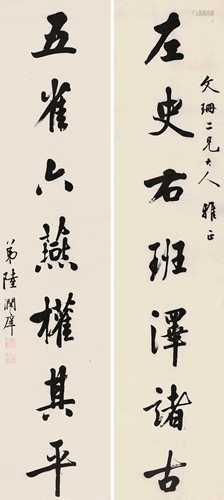 文珊二兄大人雅正
左史右班澤諸古
五雀六燕權其平
弟陸潤庠